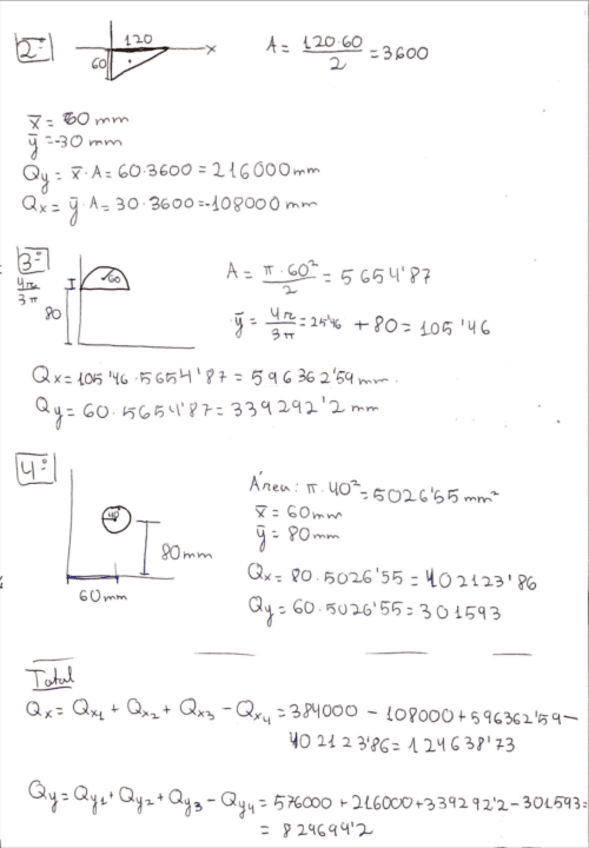 2º
120
60
x
A = 120·60 / 2 = 3600
x̄ = 60 mm
ȳ = -30 mm
Qy = x̄·A = 60·3600 = 216000mm
Qx = ȳ·A = 30·3600 = -108000 mm
3º
4r / 3π
80
r60
A = π·60² / 2 = 5654'87
ȳ = 4r / 3π = 25'46 + 80 = 105'46
Qx = 105'46·5654'87 = 596362'59 mm.
Qy = 60·5654'87 = 339292'2 mm
4º
40
80mm
60mm
Área: π·40² = 5026'55 mm²
x̄ = 60mm
ȳ = 80mm
Qx = 80·5026'55 = 402123'86
Qy = 60·5026'55 = 301593
Total
Qx = Qx1 + Qx2 + Qx3 - Qx4 = 384000 - 108000 + 596362'59 -
402123'86 = 124638'73
Qy = Qy1 + Qy2 + Qy3 - Qy4 = 576000 + 216000 + 339292'2 - 301593 =
= 824699'2